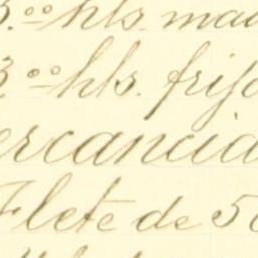 3.ºº hls. mad
3.ºº hls. frijo
ercancia
Flete de 50